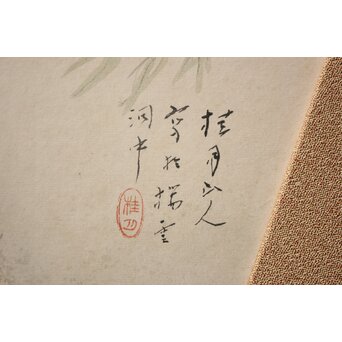 桂月山人
寫於雲
洞中
桂月